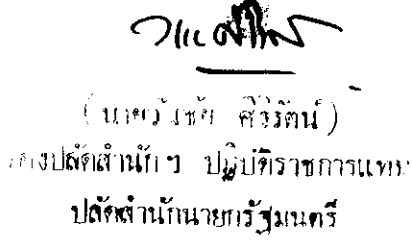 (นายวังชัย ศิริรัตน์)
รองปลัดสำนัก ฯ ปฏิบัติราชการแทน
ปลัดสำนักนายกรัฐมนตรี